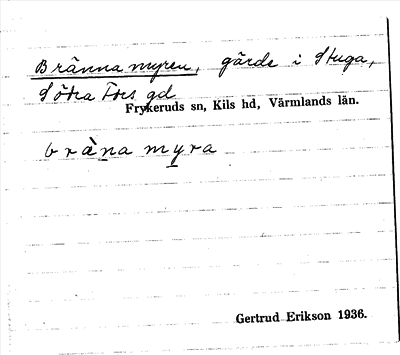 Brännamyren, gärde i Stuga,
Södra Fors gd
Frykeruds sn, Kils hd, Värmlands län.
bràna myra
Gertrud Erikson 1936.